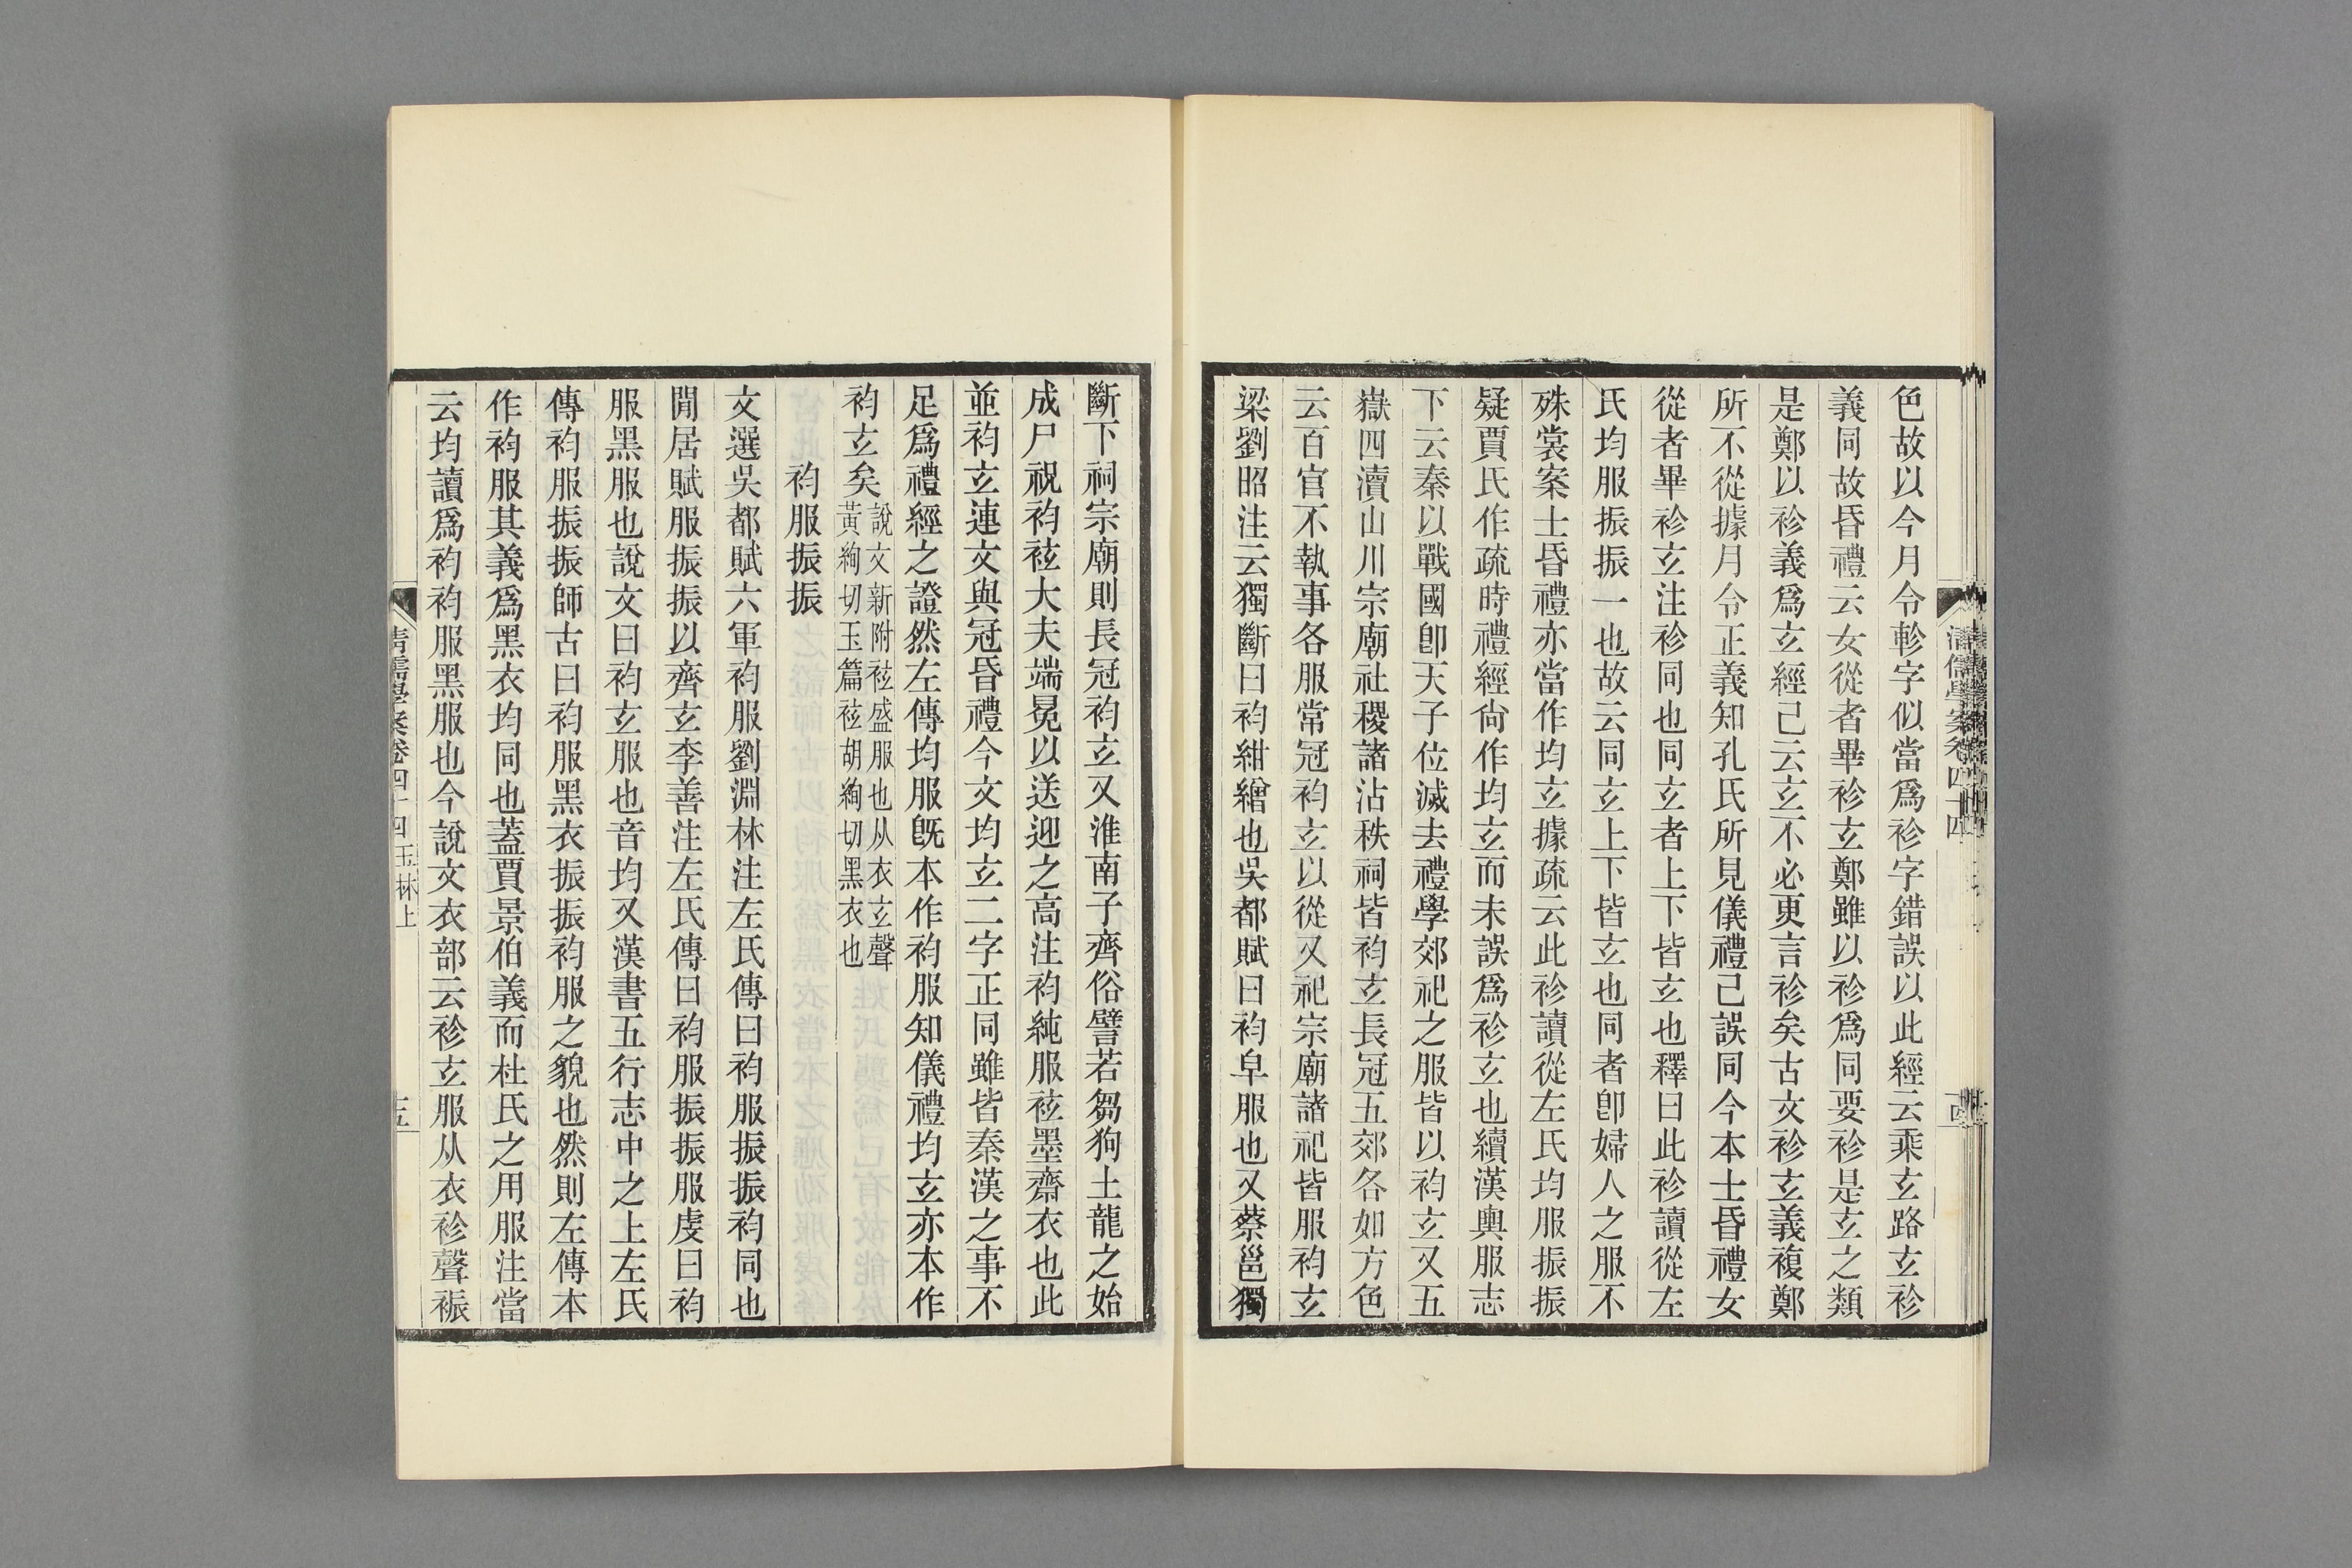 色故以今月令軫字似當爲袗字錯誤以此經云乘玄路玄袗
義同故昏禮云女從者畢袗玄鄭雖以袗爲同要袗是玄之類
是鄭以袗義爲玄經已云玄不必更言袗矣古文袗玄義複鄭
所不從據月令正義知孔氏所見儀禮已誤同今本士昏禮女
從者畢袗玄注袗同也同玄者上下皆玄也釋曰此袗讀從左
氏均服振振一也故云同玄上下皆玄也同者卽婦人之服不
殊裳案士昏禮亦當作均玄據疏云此袗讀從左氏均服振振
疑賈氏作疏時禮經尙作均玄而未誤爲袗玄也續漢輿服志
下云秦以戰國卽天子位滅去禮學郊祀之服皆以袀玄又五
嶽四瀆山川宗廟社稷諸沾秩祠皆袀玄長冠五郊各如方色
云百官不執事各服常冠袀玄以從又祀宗廟諸祀皆服袀玄
梁劉昭注云獨斷曰袀紺繒也吳都賦曰袀皁服也又蔡邕獨
斷下祠宗廟則長冠袀玄又淮南子齊俗譬若芻狗土龍之始
成尸祝袀袨大夫端冕以送迎之高注袀純服袨墨齋衣也此
並袀玄連文與冠昏禮今文均玄二字正同雖皆秦漢之事不
足爲禮經之證然左傳均服旣本作袀服知儀禮均玄亦本作
袀玄矣
說文新附袨盛服也从衣玄聲
黃絢切玉篇袨胡絢切黑衣也
袀服振振
文選吳都賦六軍袀服劉淵林注左氏傳曰袀服振振袀同也
閒居賦服振振以齊玄李善注左氏傳曰袀服振振服虔曰袀
服黑服也說文曰袀玄服也音均又漢書五行志中之上左氏
傳袀服振振師古曰袀服黑衣振振袀服之貌也然則左傳本
作袀服其義爲黑衣均同也蓋賈景伯義而杜氏之用服注當
云均讀爲袀袀服黑服也今說文衣部云袗玄服从衣㐱聲裖
清儒學案卷四十四玉林上